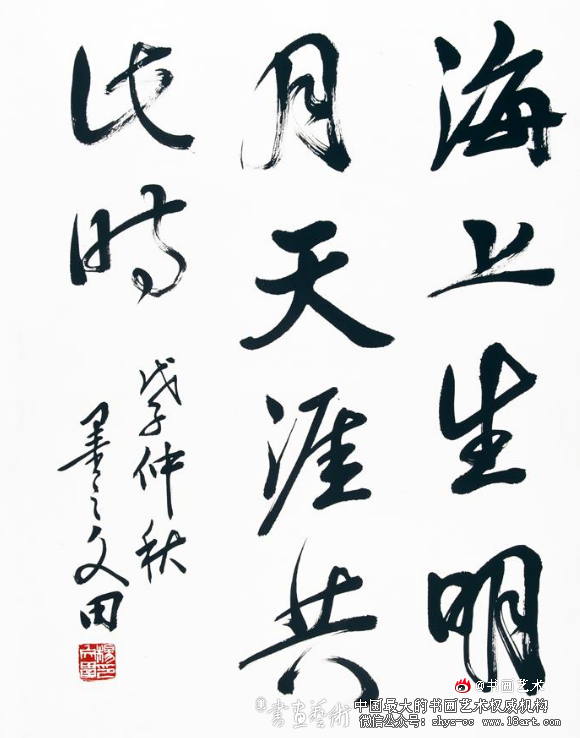 海上生明
月天涯共
此时
戊子仲秋
文田
@书画艺术
書画藝術
中国最大的书画艺术权威机构
微信公众号：shys-cc www.18art.com